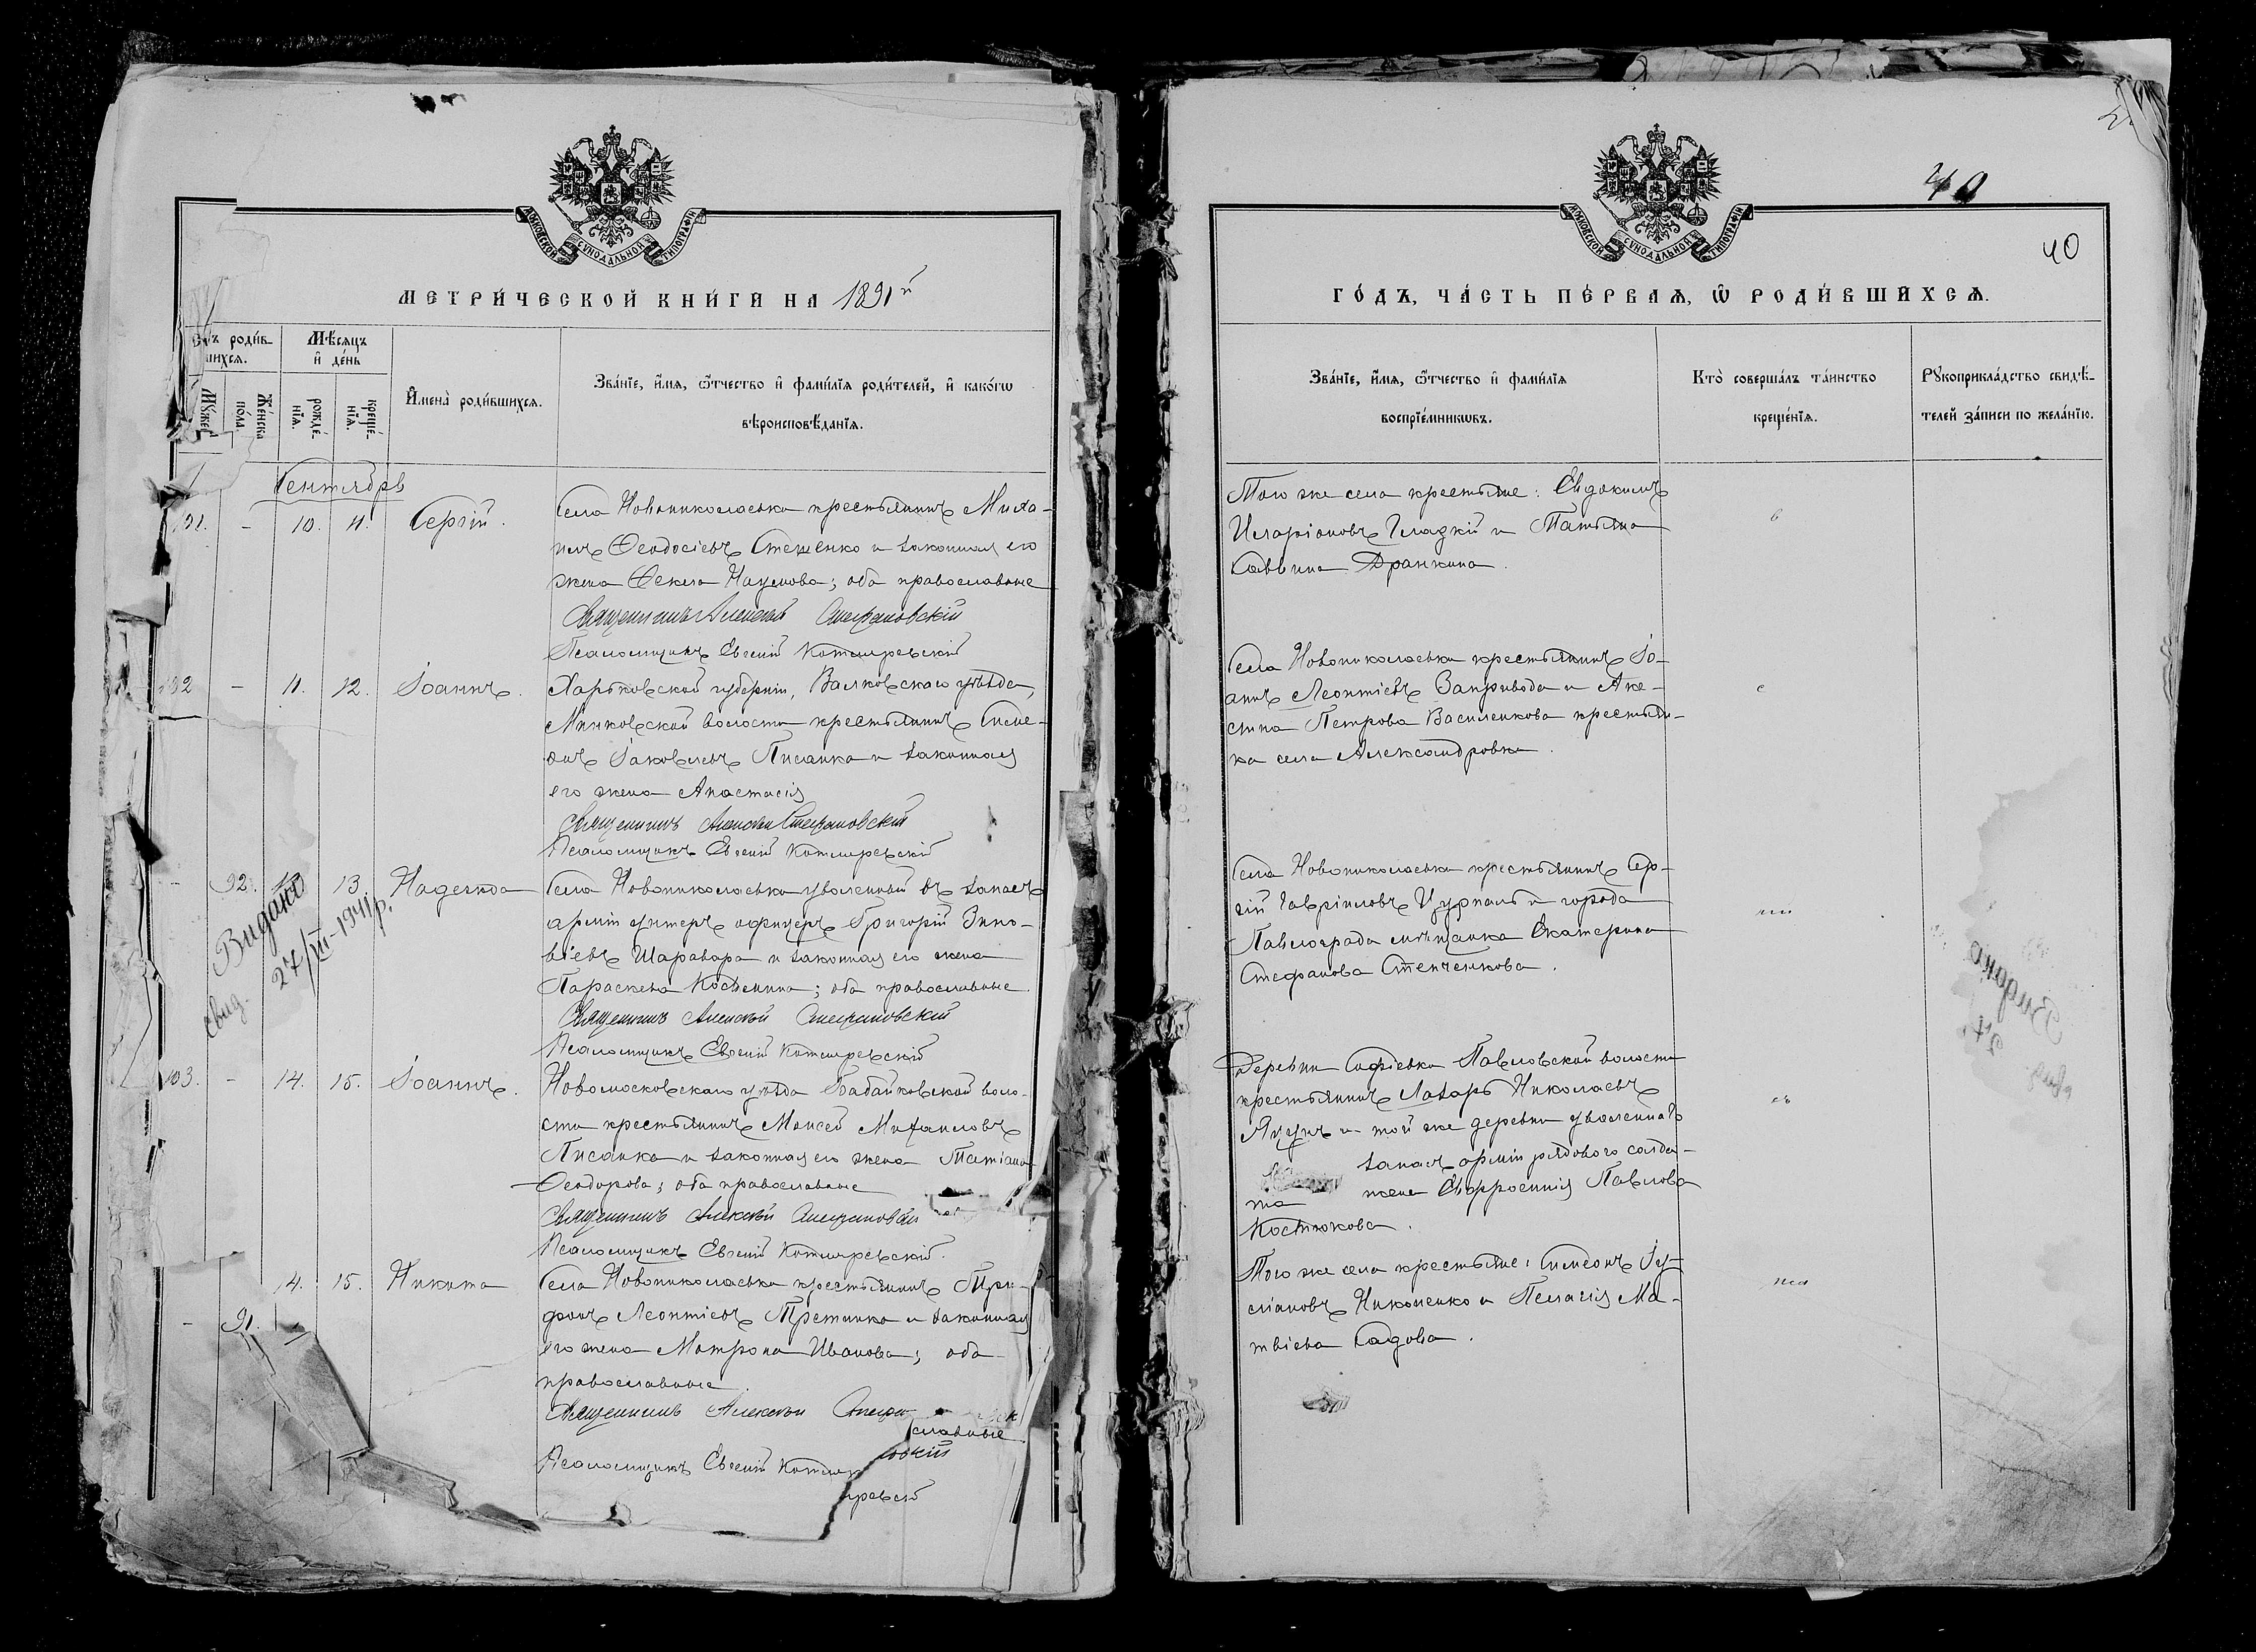 МОСКОВСКОЙ СУНОДАЛЬНОЙ ТИПОГРАФІИ
МЕТРИ́ЧЕСКОЙ КНИ́ГИ НА 1891й
родив-
шихся.
Мѣсяцъ
и день
Мужес
Женска
пола.
рожде-
нія.
креще-
нія.
Имена родившихся.
Званіе, имя, отчество и фамилія родителей, и какого
вѣроисповѣданія.
Сентябрь
101. - 10. 11. Сергій.
Села Новониколаевки крестьянинъ Миха-
илъ Ѳеодосіевъ Стеценко и законная его
жена Ѳекла Наумова; оба православные
Священникъ Алексѣй Стефановскій
Псаломщикъ Евгеній Котляревскій
102 - 11. 12. Іоаннъ.
Харьковской губерніи, Валковскаго уѣзда,
Минковской волости крестьянинъ Симе-
онъ Іаковлевъ Писанка и законная
его жена Анастасія
Священникъ Алексѣй Стефановскій
Псаломщикъ Евгеній Котляревскій
- 92. 13. Надежда
Видано
свид. 27/III-1941р.
Села Новониколаевки уволенный въ запасъ
арміи унтеръ офицеръ Григорій Зино-
віевъ Шаравара и законная его жена
Параскева Косьмина; оба православные.
Священникъ Алексѣй Стефановскій
Псаломщикъ Евгеній Котляревскій
103. - 14. 15. Іоаннъ.
Новомосковскаго уѣзда Бабайковской воло-
сти крестьянинъ Моисей Михаиловъ
Писанка и законная его жена Татіана
Ѳеодорова; оба православные
Священникъ Алексѣй Стефановскій
Псаломщикъ Евгеній Котляревскій.
4. 15. Никита
Села Новониколаевки крестьянинъ Три-
фонъ Леонтіевъ Третинка и законная
его жена Матрона Иванова; оба
православные.
Священникъ Алексѣй Стефа
славные
овскій
Псаломщикъ Евгеній Котля
ревскій
- 91.
40
40
МОСКОВСКОЙ СУНОДАЛЬНОЙ ТИПОГРАФІИ
ГО́ДЪ, ЧА́СТЬ ПЕ́РВАЯ, Ѡ РОДИ́ВШИХСЯ.
Званіе, имя, отчество и фамилія
воспріемниковъ.
Кто совершалъ таинство
крещенія.
Рукоприкладство свидѣ-
телей записи по желанію.
Того же села крестьяне: Евдокимъ
Иларіоновъ Гладкій и Татьяна
Саввина Дранкина.
Села Новониколаевки крестьянинъ Іо-
аннъ Леонтіевъ Запривода и Аке-
стина Петрова Василенкова крестьян-
ка села Александровки.
Села Новониколаевки крестьянинъ Сер-
гій Гавріиловъ Цурпалъ и города
Павлограда мѣщанка Екатерина
Стефанова Степченкова.
Видано
Деревни Софіевки Павловской волости
крестьянинъ Лазарь Николаевъ
Яцунъ и той же деревни уволеннаго
запасъ арміи рядового солда-
та жена Евфросинія Павлова
Костюкова.
Того же села крестьяне: Симеонъ Іу-
ліановъ Николенко и Пелагія Ма-
твіева Садова.